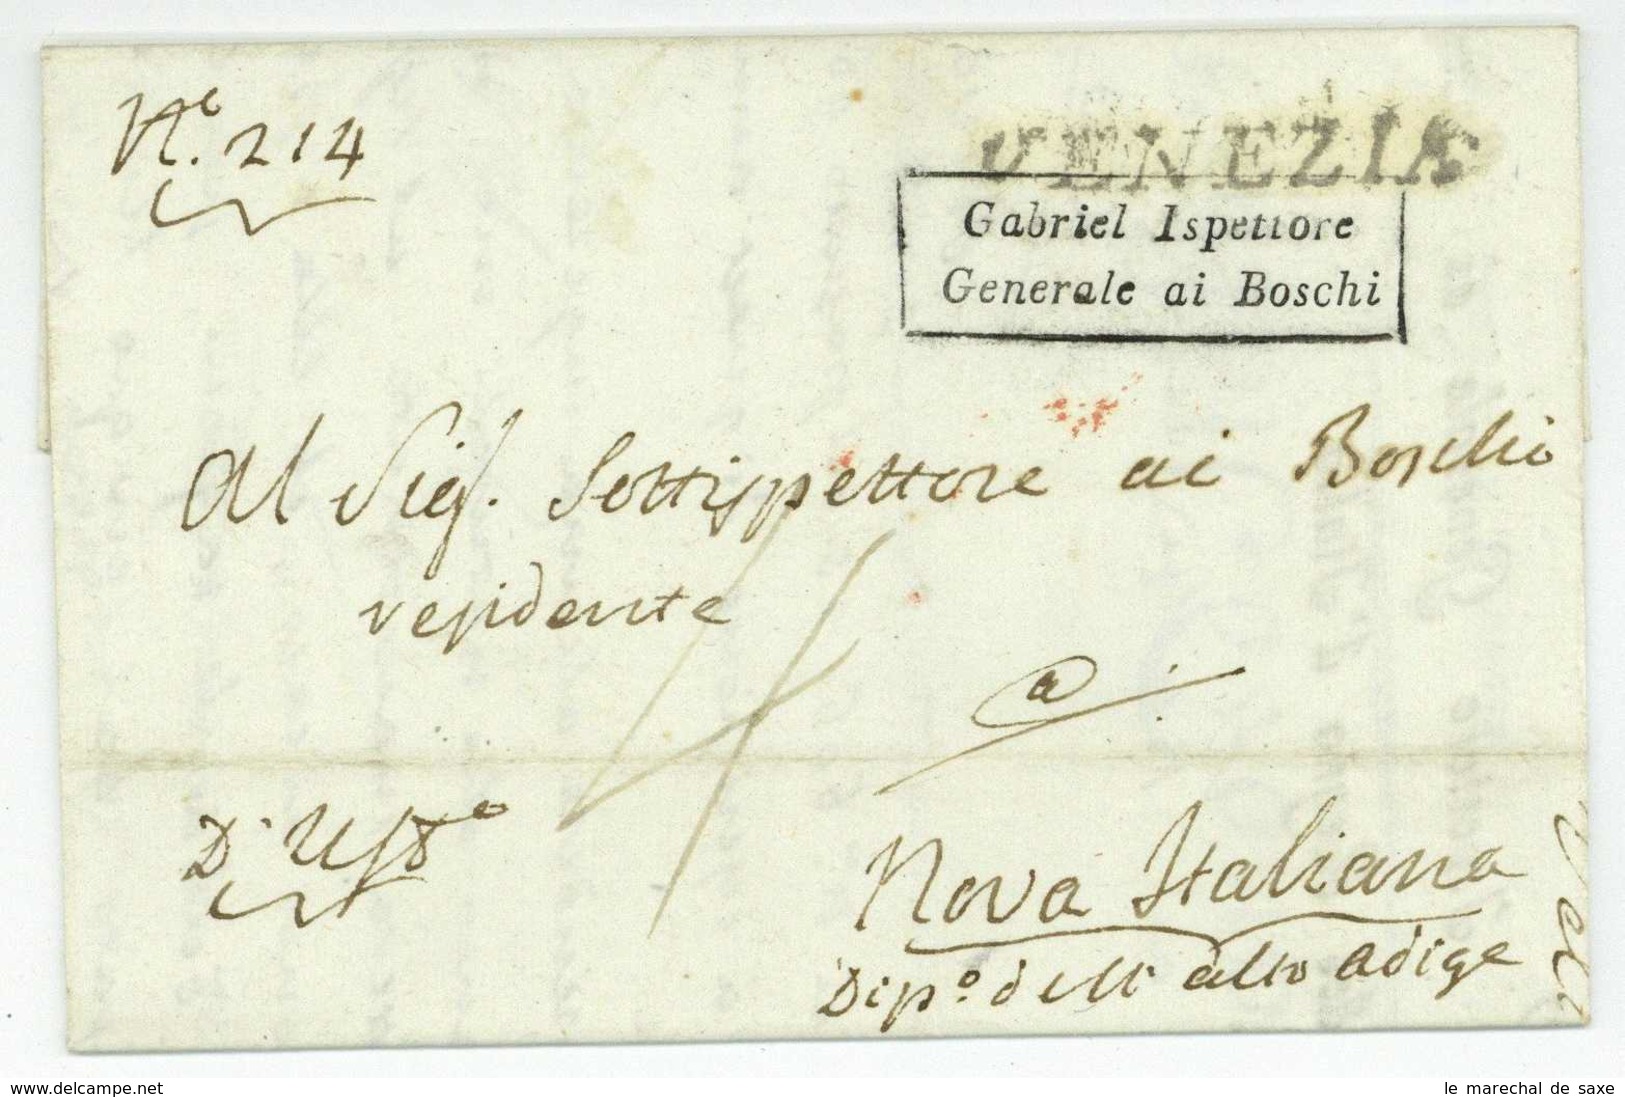 N.° 214
VENEZIA
Gabriel Ispettore
Generale ai Boschi
Al Sig.r Sottispettore ai Boschi
residente
a
D' Uff.o
Nova Italiana
Dip.o dell' alto Adige
www.delcampe.net
le marechal de saxe